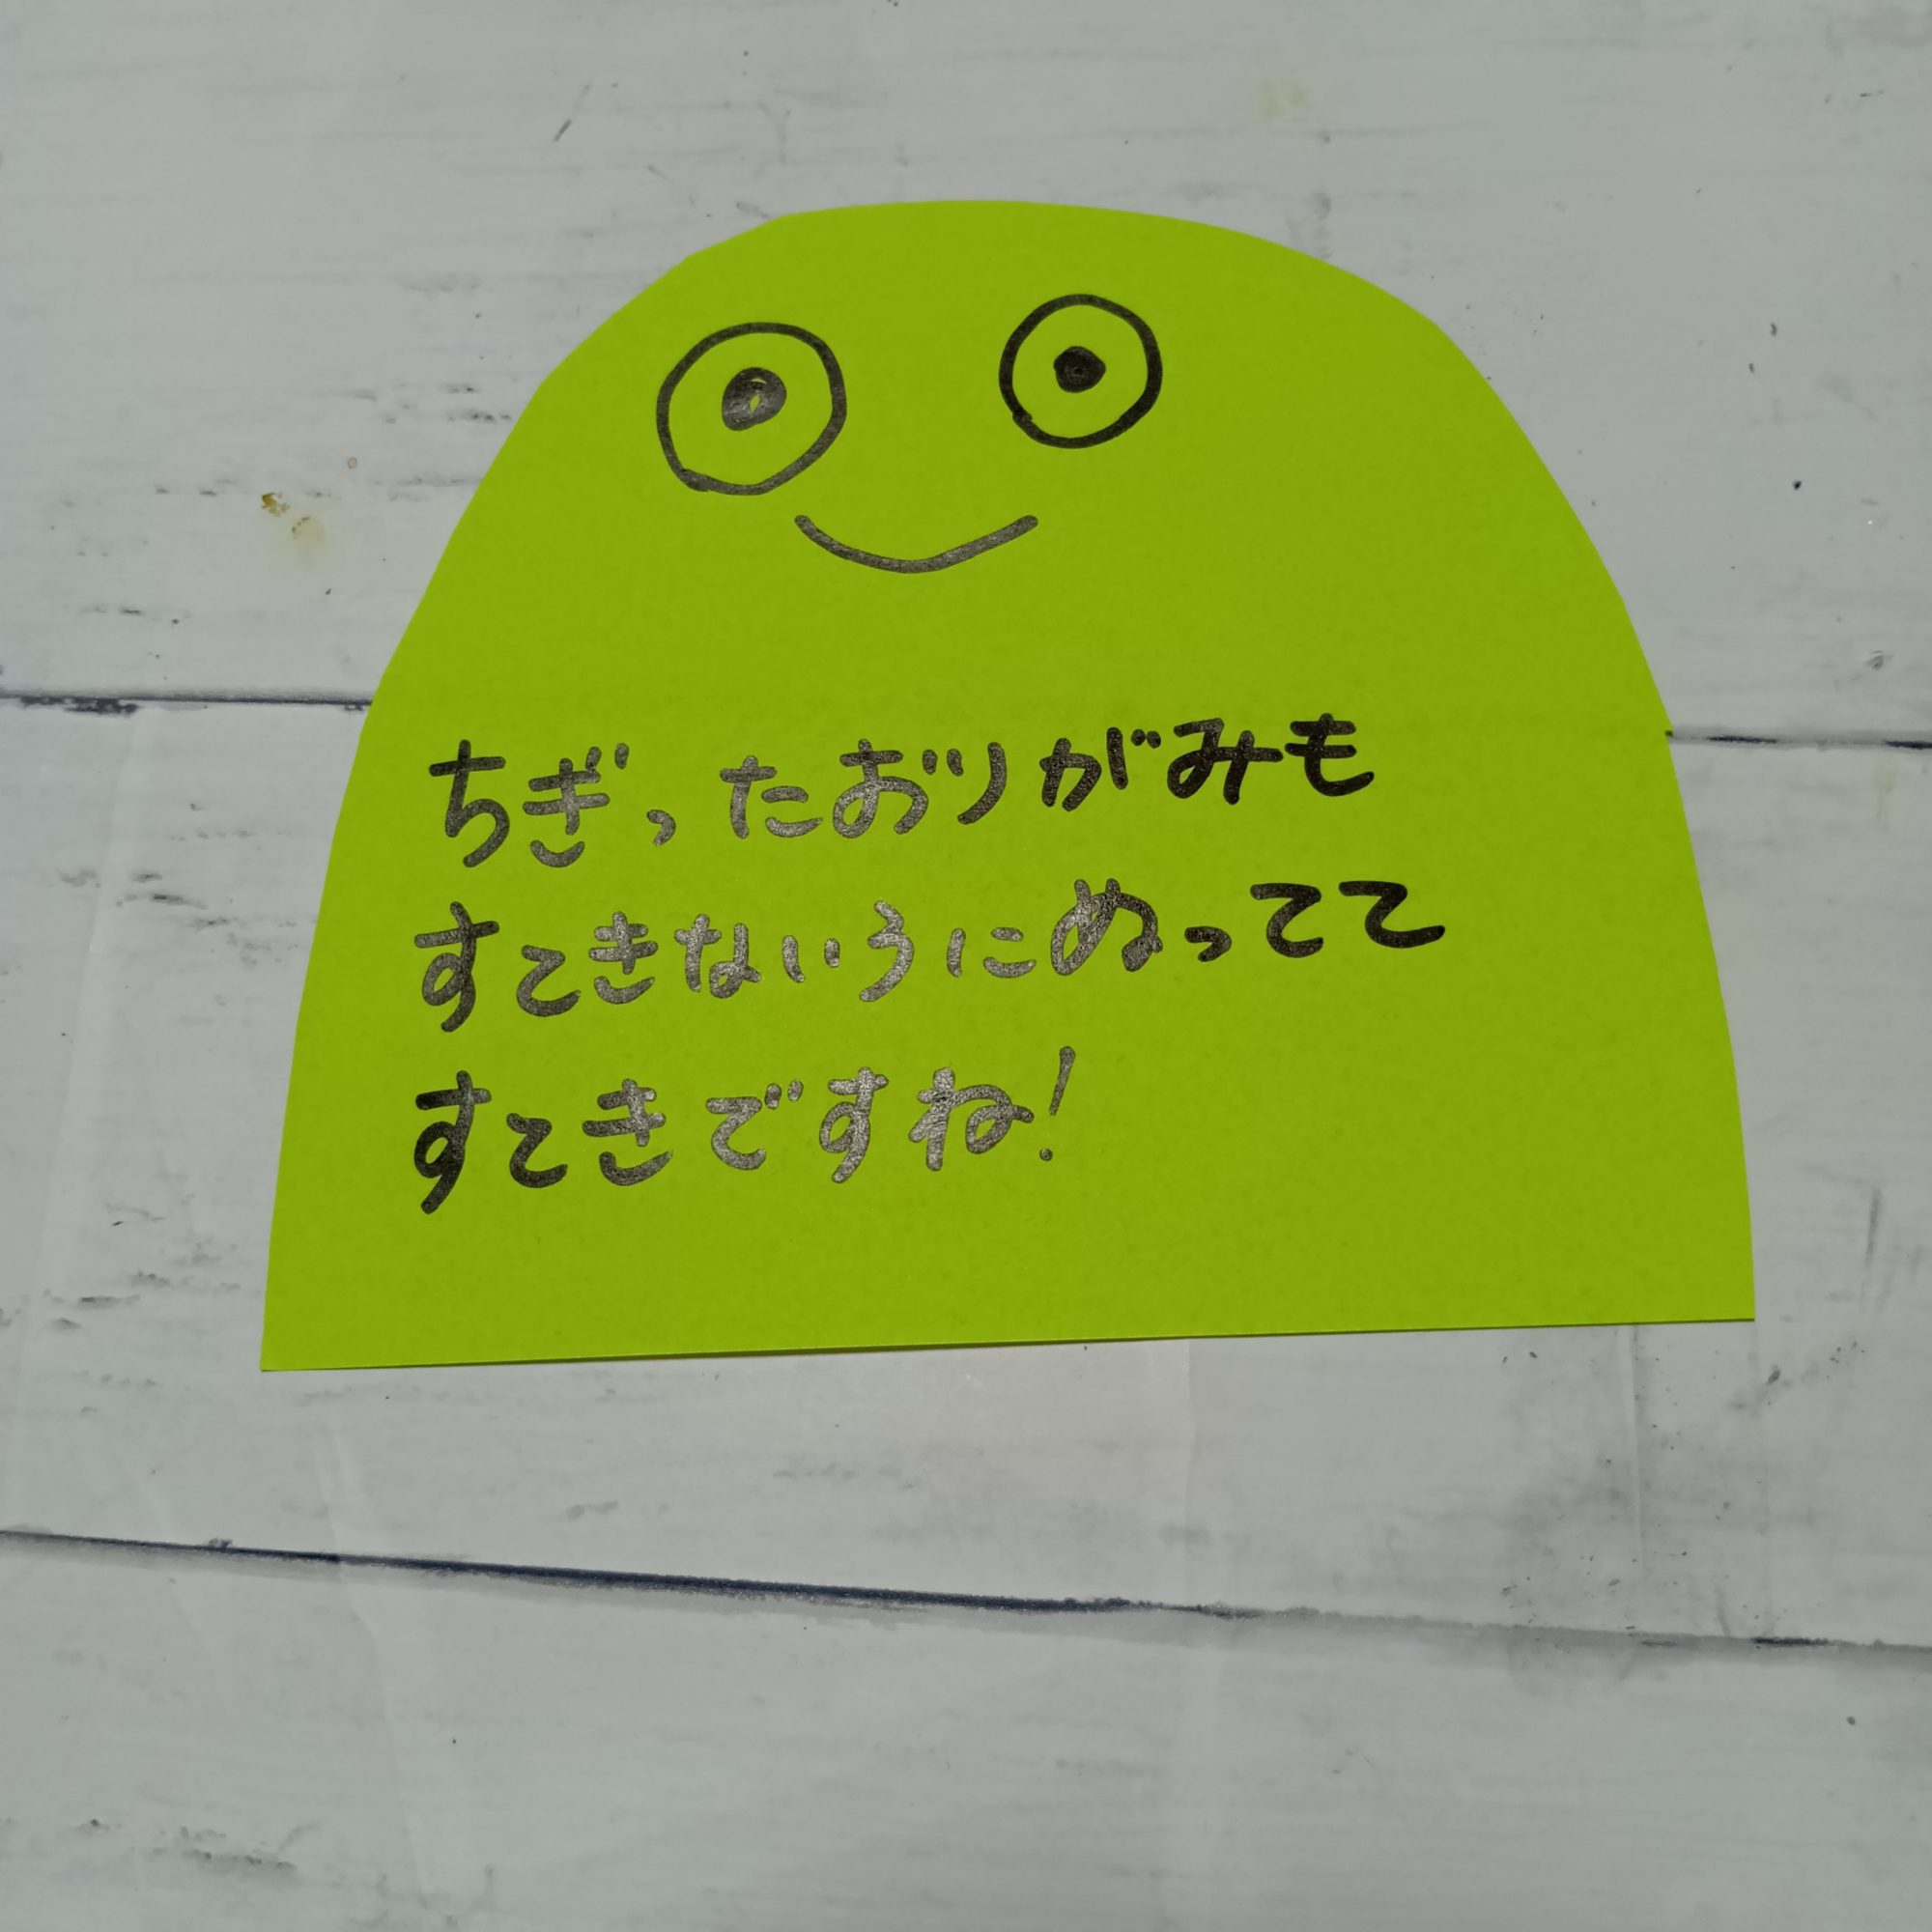 ちぎったおりがみも
すてきないうにぬってて
すてきですね!